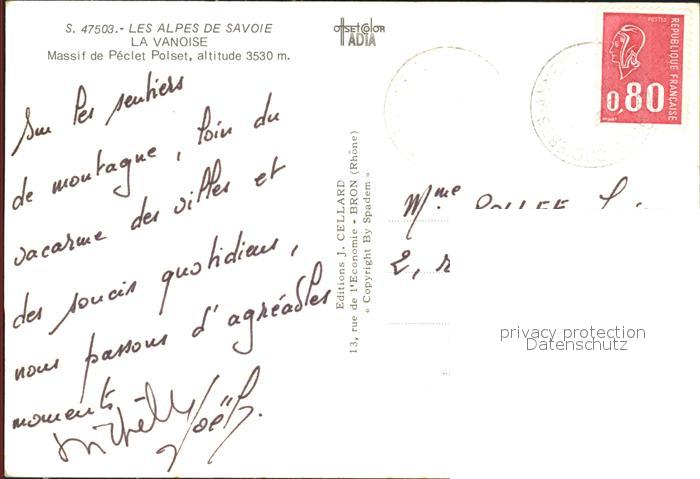 S. 47503.- LES ALPES DE SAVOIE
LA VANOISE
Massif de Péclet Polset, altitude 3530 m.
offsetcolor
IADIA
POSTES
REPUBLIQUE FRANÇAISE
0,80
Sur les sentiers
de montagne, loin du
vacarme des villes et
des soucis quotidiens,
nous passons d'agréables
moments
Michelle Joëlle.
Editions J. CELLARD
13, rue de l'Economie - BRON (Rhône)
« Copyright By Spadem »
Mme
2,
privacy protection
Datenschutz